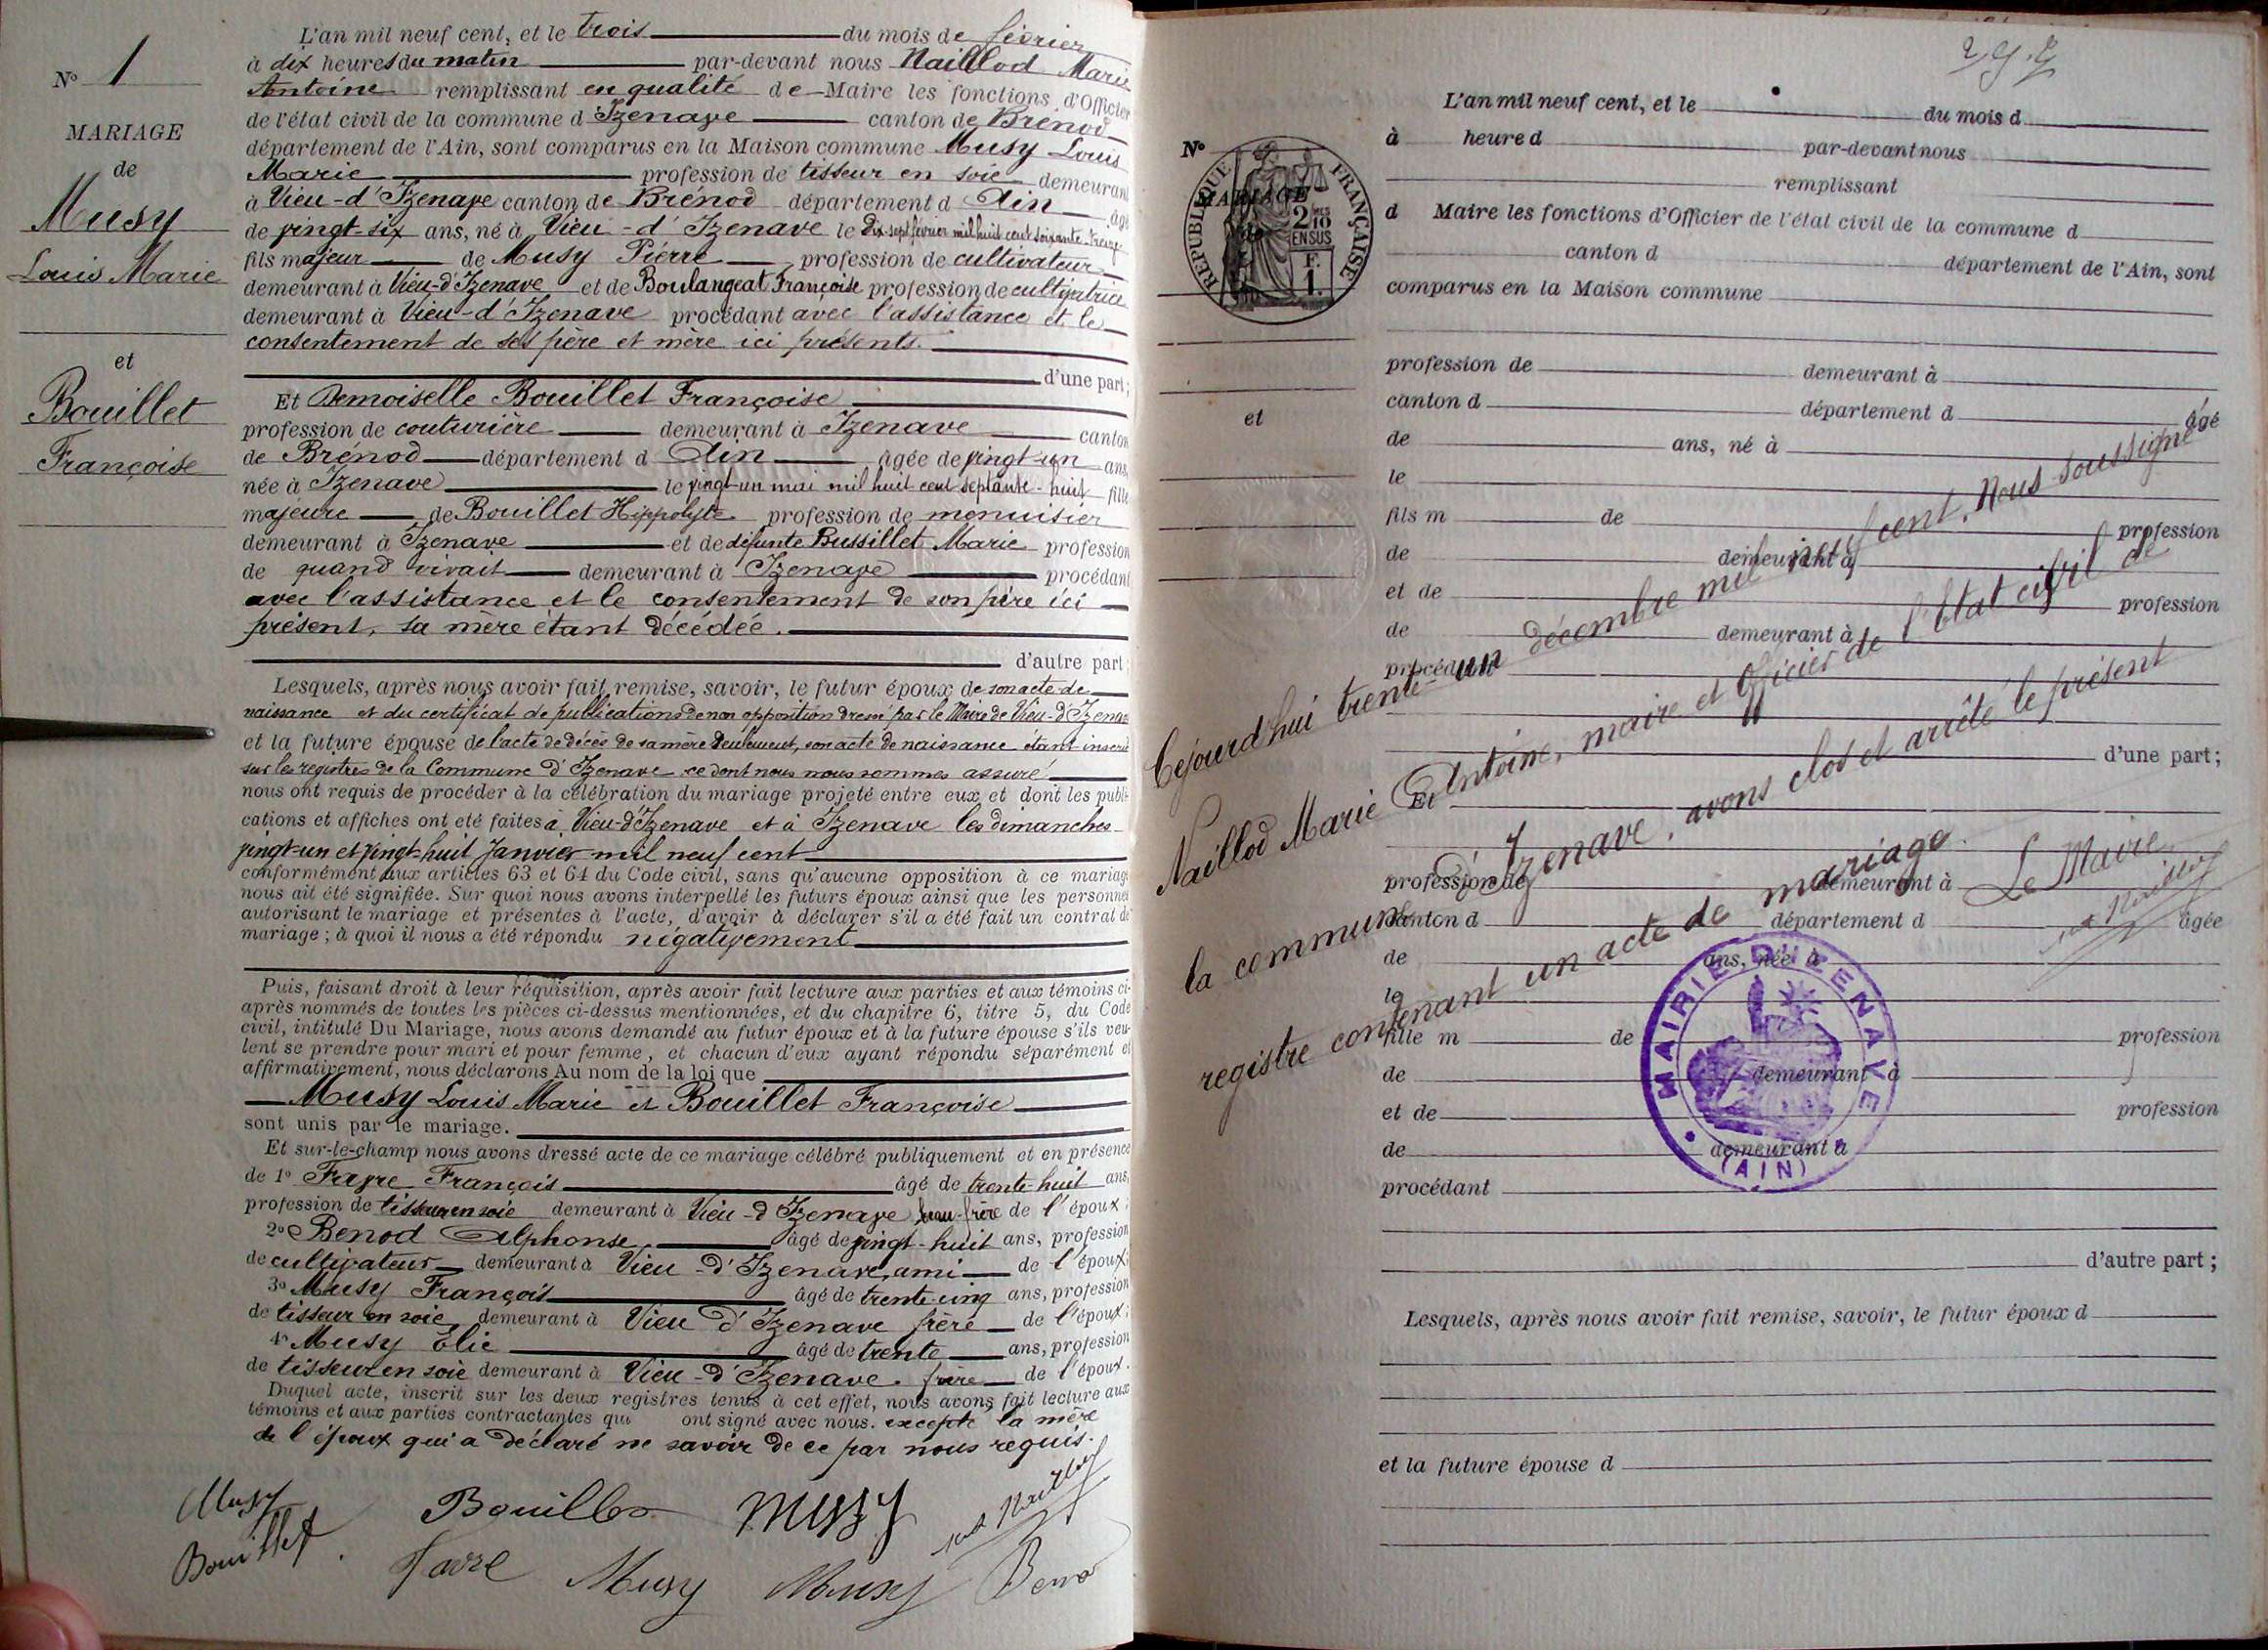 N° 1
MARIAGE
de
Musy
Louis Marie
et
Bouillet
Françoise
L'an mil neuf cent, et le trois du mois de février
à dix heures du matin par-devant nous Naillod Marie
Antoine remplissant en qualité de Maire les fonctions d'Officier
de l'état civil de la commune d'Izenave canton de Brénod
département de l'Ain, sont comparus en la Maison commune Musy Louis
Marie profession de tisseur en soie demeurant
à Vieu-d'Izenave canton de Brénod département d Ain âgé
de vingt-six ans, né à Vieu-d'Izenave le dix sept février mil huit cent soixante-treize
fils majeur de Musy Pierre profession de cultivateur
demeurant à Vieu-d'Izenave et de Boulangeat Françoise profession de cultivatrice
demeurant à Vieu-d'Izenave procédant avec l'assistance et le
consentement de ses père et mère ici présents.
d'une part;
Et Demoiselle Bouillet Françoise
profession de couturière demeurant à Izenave canton
de Brénod département d Ain âgée de vingt-un ans,
née à Izenave le vingt-un mai mil huit cent septante-huit fille
majeure de Bouillet Hippolyte profession de menuisier
demeurant à Izenave et de défunte Bussillet Marie profession
de quand vivait demeurant à Izenave procédant
avec l'assistance et le consentement de son père ici
présent, sa mère étant décédée.
d'autre part;
Lesquels, après nous avoir fait remise, savoir, le futur époux de son acte de
naissance et du certificat de publications de non opposition dressé par le Maire de Vieu-d'Izenave
et la future épouse de l'acte de décès de sa mère seulement, son acte de naissance étant inscrit
sur les registres de la Commune d'Izenave ce dont nous nous sommes assuré
nous ont requis de procéder à la célébration du mariage projeté entre eux et dont les publi-
cations et affiches ont été faites à Vieu-d'Izenave et à Izenave les dimanches
vingt-un et vingt-huit Janvier mil neuf cent
conformément aux articles 63 et 64 du Code civil, sans qu'aucune opposition à ce mariage
nous ait été signifiée. Sur quoi nous avons interpellé les futurs époux ainsi que les personnes
autorisant le mariage et présentes à l'acte, d'avoir à déclarer s'il a été fait un contrat de
mariage; à quoi il nous a été répondu négativement
Puis, faisant droit à leur réquisition, après avoir fait lecture aux parties et aux témoins ci-
après nommés de toutes les pièces ci-dessus mentionnées, et du chapitre 6, titre 5, du Code
civil, intitulé Du Mariage, nous avons demandé au futur époux et à la future épouse s'ils veu-
lent se prendre pour mari et pour femme, et chacun d'eux ayant répondu séparément et
affirmativement, nous déclarons Au nom de la loi que
Musy Louis Marie et Bouillet Françoise
sont unis par le mariage.
Et sur-le-champ nous avons dressé acte de ce mariage célébré publiquement et en présence
de 1° Favre François âgé de trente-huit ans,
profession de tisseur en soie demeurant à Vieu-d'Izenave beau-frère de l'époux;
2° Benod Alphonse âgé de vingt-huit ans, profession
de cultivateur demeurant à Vieu-d'Izenave, ami de l'époux;
3° Musy François âgé de trente-cinq ans, profession
de tisseur en soie, demeurant à Vieu d'Izenave frère de l'époux;
4° Musy Élie âgé de trente ans, profession
de tisseur en soie demeurant à Vieu-d'Izenave. frère de l'époux.
Duquel acte, inscrit sur les deux registres tenus à cet effet, nous avons fait lecture aux
témoins et aux parties contractantes qui ont signé avec nous. excepté la mère
de l'époux qui a déclaré ne savoir de ce par nous requis.
Musy Bouillet Musy Naillod
Bouillet Favre Musy Musy Beno
L'an mil neuf cent, et le du mois d
N°
MARIAGE
RÉPUBLIQUE FRANÇAISE
2/10
EN SUS
F.
1.
et
à heure d par-devant nous
remplissant
d Maire les fonctions d'Officier de l'état civil de la commune d
canton d département de l'Ain, sont
comparus en la Maison commune
profession de demeurant à
canton d département d âgé
de ans, né à
le
fils m de profession
de demeurant à
et de profession
de demeurant à
procédant
d'une part;
Et
profession de demeurant à
canton d département d âgée
de ans, née à
le
fille m de profession
de demeurant à
et de profession
de demeurant à
procédant
d'autre part;
Lesquels, après nous avoir fait remise, savoir, le futur époux d
et la future épouse d
Cejourd'hui trente-un décembre mil neuf cent, Nous soussigné
Naillod Marie Antoine, maire et Officier de l'État civil de
la commune d'Izenave, avons clos et arrêté le présent
registre contenant un acte de mariage.
Le Maire
Naillod
MAIRIE D'IZENAVE
(AIN)